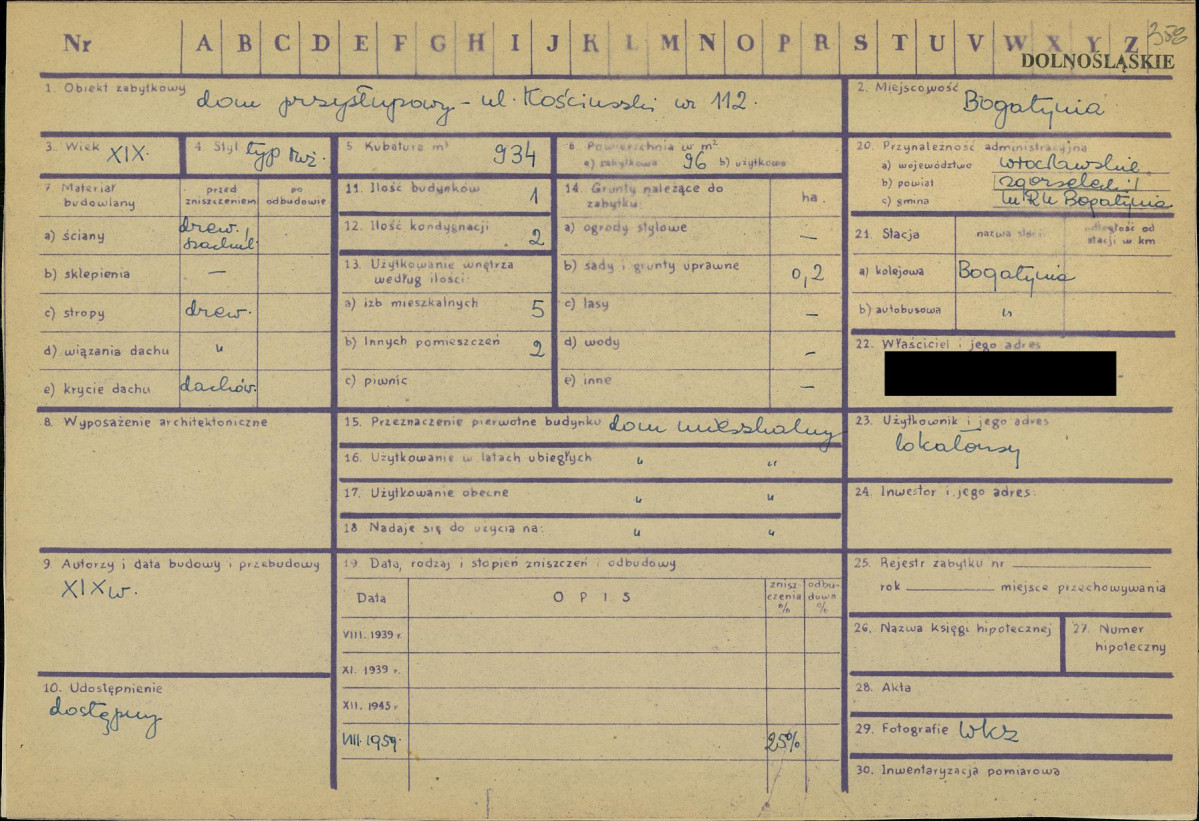 Nr A B C D E F G H I J K L M N O P R S T U V W X Y Z 358
DOLNOŚLĄSKIE
1. Obiekt zabytkowy dom przysłupowy - ul. Kościuszki nr 112.
2. Miejscowość Bogatynia
3. Wiek XIX.
4. Styl typ łuż.
5 Kubatura m³ 934
6 Powierzchnia w m²
a) zabytkowa 96 b) użytkowa
20. Przynależność administracyjna
a) województwo wrocławskie
b) powiat zgorzelecki
c) gmina MRN Bogatynia
7. Materiał budowlany
przed zniszczeniem
po odbudowie
a) ściany drew. szachul.
b) sklepienia —
c) stropy drew.
d) wiązania dachu "
e) krycie dachu dachów.
11. Ilość budynków 1
12. Ilość kondygnacji 2
13. Użytkowanie wnętrza według ilości:
a) izb mieszkalnych 5
b) Innych pomieszczeń 2
c) piwnic
14. Grunty należące do zabytku: ha
a) ogrody stylowe —
b) sady i grunty uprawne 0,2
c) lasy —
d) wody —
e) inne —
21. Stacja nazwa stacji odległość od stacji w km
a) kolejowa Bogatynia
b) autobusowa "
22. Właściciel i jego adres
8. Wyposażenie architektoniczne
15. Przeznaczenie pierwotne budynku dom mieszkalny
16. Użytkowanie w latach ubiegłych " "
17. Użytkowanie obecne " "
18 Nadaje się do użycia na: " "
23. Użytkownik i jego adres
lokatorzy
24. Inwestor i jego adres:
9. Autorzy i data budowy i przebudowy
XIX w.
19. Data, rodzaj i stopień zniszczeń i odbudowy
Data OPIS zniszczenia % odbudowa %
VIII. 1939 r.
XI. 1939 r.
XII. 1945 r
VIII. 1959. 25%
10. Udostępnienie
dostępny
25. Rejestr zabytku nr
rok miejsce przechowywania
26. Nazwa księgi hipotecznej
27. Numer hipoteczny
28. Akta
29. Fotografie WKZ
30. Inwentaryzacja pomiarowa